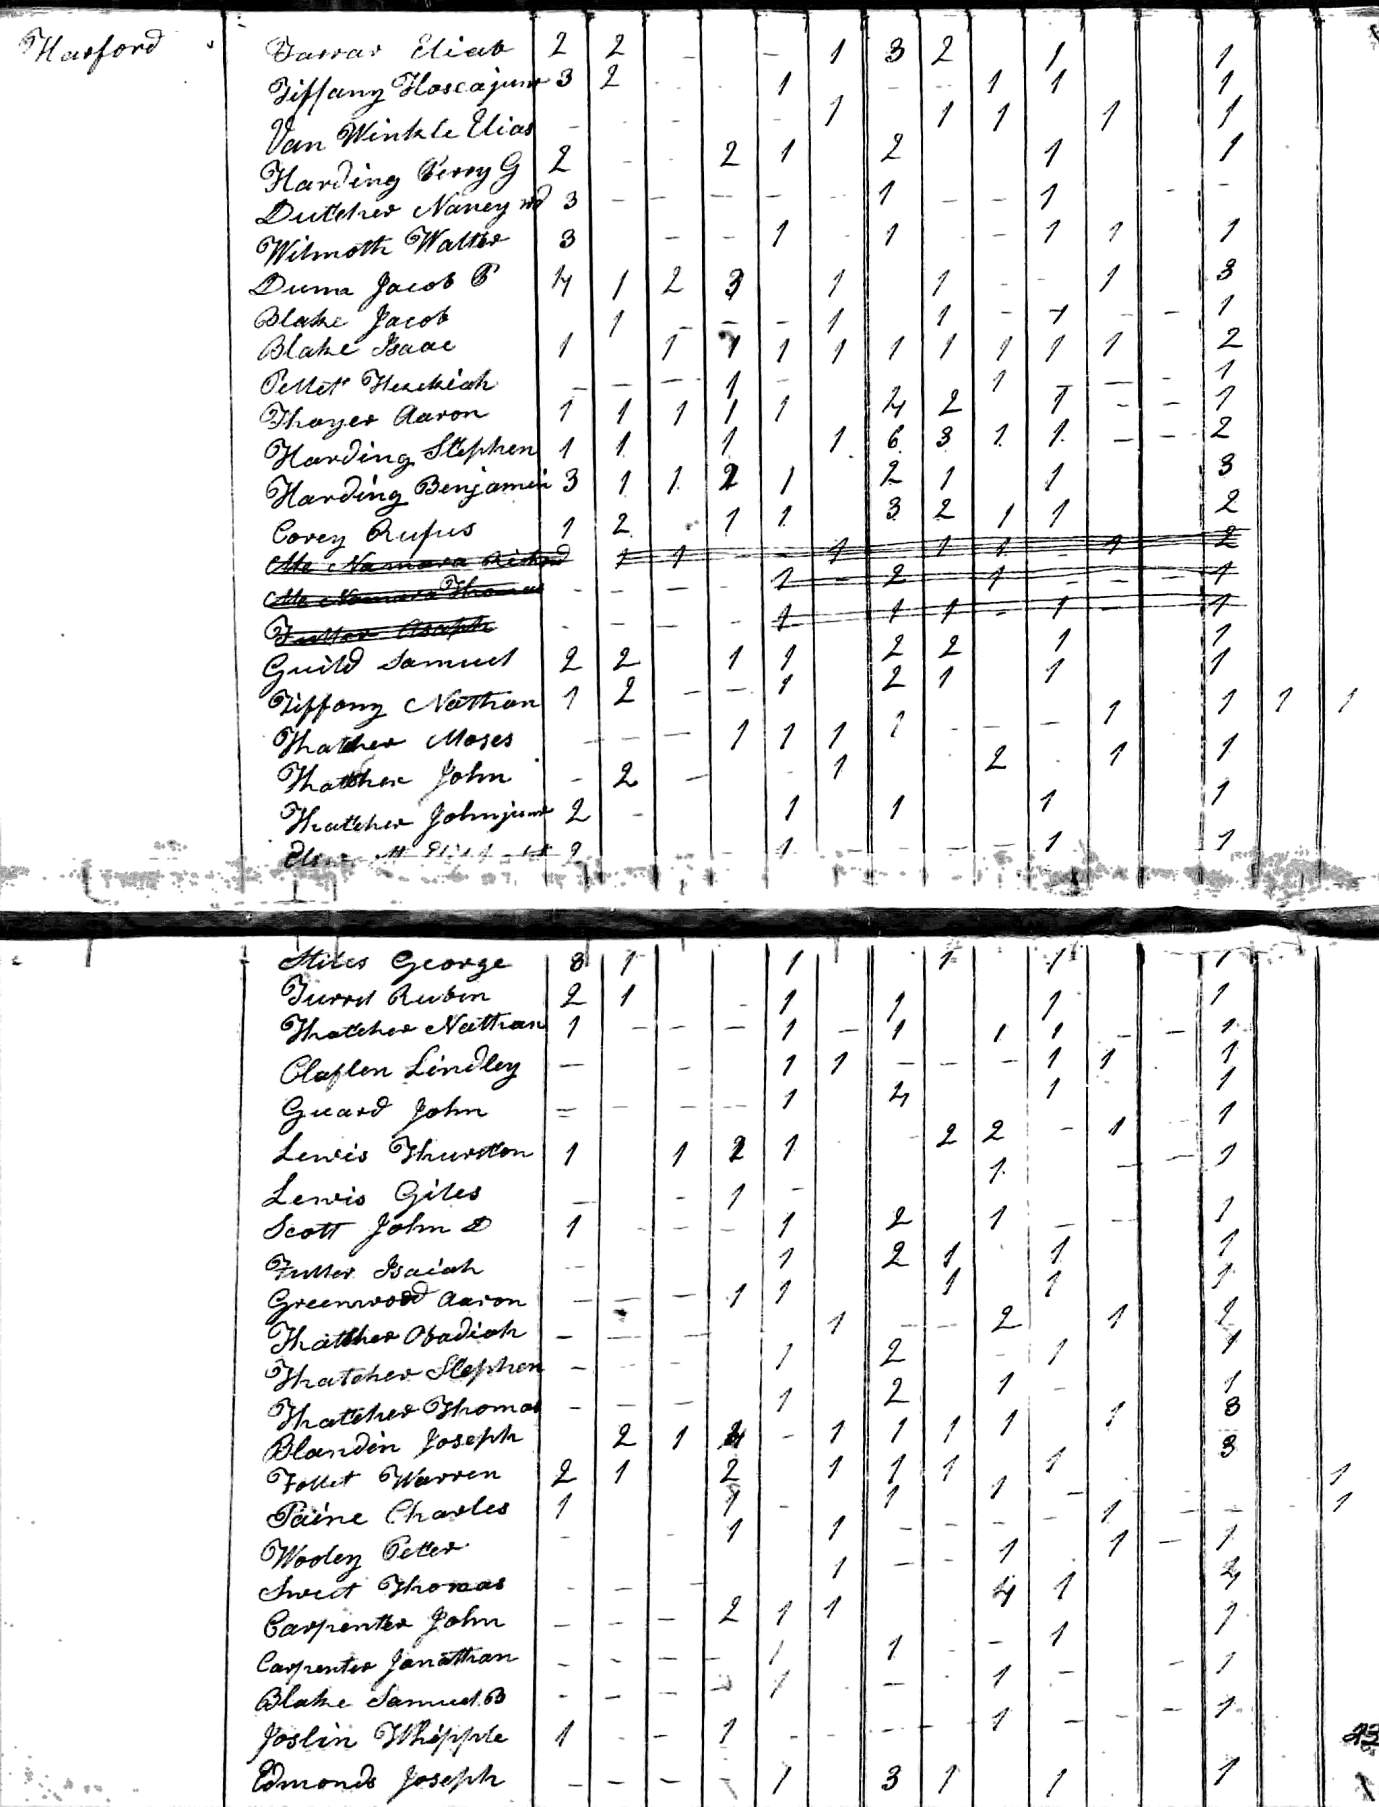 Harford Farrar Eliab 2 2 - - 1 3 2 1 1
Tiffany Hosea junr 3 2 1 1 1 1
Van Winkle Elias - - - - 1 1 1 1 1
Harding Perry G 2 - - 2 1 2 1 1
Dutcher Nancy wd 3 - - - - - 1 - - 1 - -
Wilmoth Walter 3 - - 1 - 1 - - 1 1 1
Jacob P 4 1 2 3 1 1 - - 1 3
Blake Jacob 1 - - - 1 1 - 1 - - 1
Blake Isaac 1 1 1 1 1 1 1 1 1 1 2
Pellet Hezekiah - - - 1 - 1 - - - 1
Thayer Aaron 1 1 1 1 1 4 2 1 - - 1
Harding Stephen 1 1 1 1 6 3 1 1 - - 2
Harding Benjamin 3 1 1 2 1 2 1 1 3
Corey Rufus 1 2 1 1 3 2 1 1 2
Mc Namara Richard 1 1 - - 1 1 1 - 1 2
Mc Namara Thomas - - - - 1 - 2 1 - - - 1
Fuller Asaph - - - - 1 1 1 - 1 - 1
Guild Samuel 2 2 1 1 2 2 1 1
Tiffany Nathan 1 2 - - 1 2 1 1 1
Thatcher Moses - - - 1 1 1 1 - - - 1 1 1 1
Thatcher John - 2 - - 1 2 1 1
Thatcher John junr 2 - 1 1 1 1
2 - - 1 - - - - 1 1
Stiles George 3 1 1 1 1 1
Rubin 2 1 - 1 1 1 1
Thatcher Nathan 1 - - - 1 - 1 1 1 - - 1
Claflen Lindley - - 1 1 - - - 1 1 1
Guard John = - - - 1 4 1 1
Lewis Thurston 1 1 2 1 - 2 2 - 1 1
Lewis Giles - - 1 - 1 - - 1
Scott John D 1 - - - 1 2 1 - - 1
Fuller Isaiah - 1 2 1 1 1
Greenwood Aaron - - - 1 1 1 1 1
Thatcher Obadiah - - - - 1 - - 2 1 2
Thatcher Stephen - - - 1 2 - 1 1
Thatcher Thomas - - - 1 2 1 - 1
Blanden Joseph 2 1 4 - 1 1 1 1 1 3
Follet Warren 2 1 2 1 1 1 1 3
Paine Charles 1 1 - 1 1 - 1
Wooley Peter - - 1 1 - - - - 1 - - - 1
Sweet Thomas - - - 1 - - 1 1 - 1
Carpenter John - - - 2 1 1 4 1 4
Carpenter Jonathan - - - - 1 1 - - 1 1
Blake Samuel B - - - - 1 - 1 - - 1
Joslin Whipple 1 - - 1 - - - - 1 - - - 1
Edmonds Joseph - - - - 1 3 1 1 1